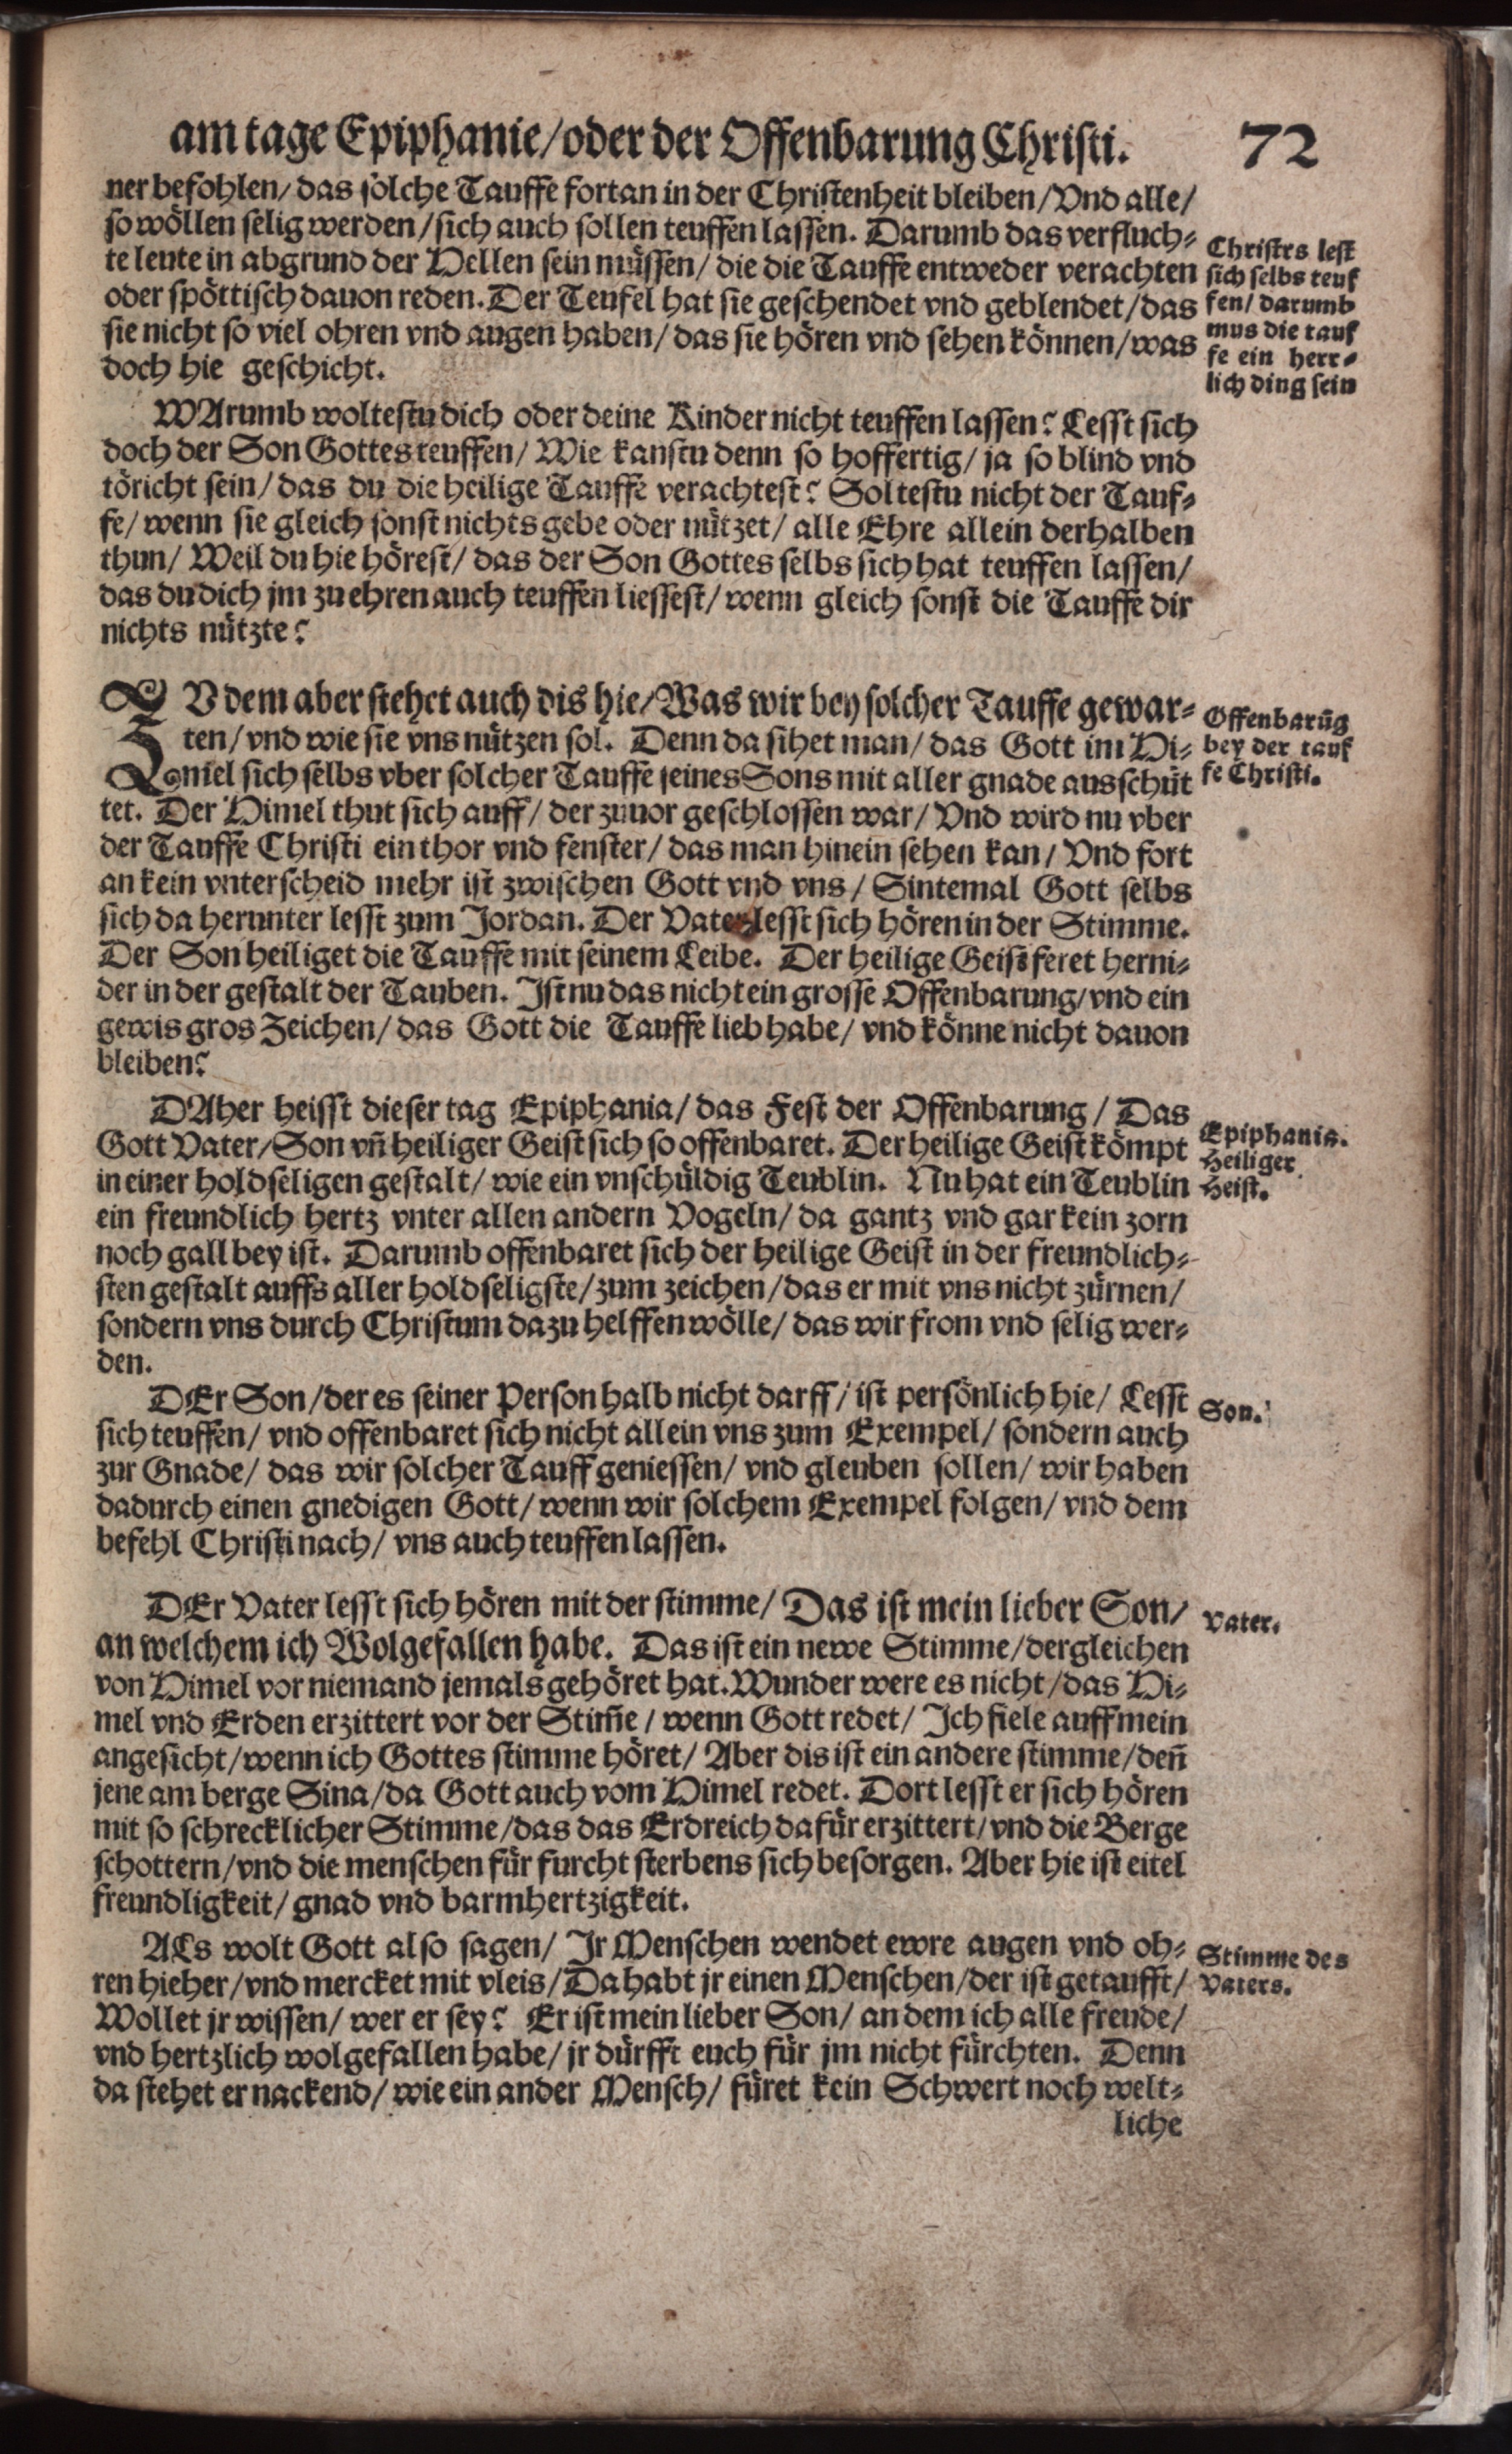 am tage Epiphanie/oder der Offenbarung Christi. 72
ner befohlen/ das solche Tauffe fortan in der Christenheit bleiben/Vnd alle/
so wöllen selig werden/sich auch sollen teuffen lassen. Darumb das verfluch-
te leute in abgrund der Hellen sein müssen/ die die Tauffe entweder verachten
oder spöttisch dauon reden. Der Teufel hat sie geschendet vnd geblendet/das
sie nicht so viel ohren vnd augen haben/ das sie hören vnd sehen können/was
doch hie geschicht.
Christrs lest
sich selbs teuf
fen/ darumb
mus die tauf
fe ein herr-
lich ding sein
WArumb woltestu dich oder deine Kinder nicht teuffen lassen? Lesst sich
doch der Son Gottes teuffen/ Wie kanstu denn so hoffertig/ ja so blind vnd
töricht sein/ das du die heilige Tauffe verachtest? Soltestu nicht der Tauf-
fe/ wenn sie gleich sonst nichts gebe oder nützet/ alle Ehre allein derhalben
thun/ Weil du hie hörest/ das der Son Gottes selbs sich hat teuffen lassen/
das du dich jm zu ehren auch teuffen liessest/ wenn gleich sonst die Tauffe dir
nichts nützte?
ZV dem aber stehet auch dis hie/Was wir bey solcher Tauffe gewar-
ten/ vnd wie sie vns nützen sol. Denn da sihet man/ das Gott im Hi-
mel sich selbs vber solcher Tauffe seines Sons mit aller gnade ausschüt
tet. Der Himel thut sich auff/ der zuuor geschlossen war/ Vnd wird nu vber
der Tauffe Christi ein thor vnd fenster/ das man hinein sehen kan/ Vnd fort
an kein vnterscheid mehr ist zwischen Gott vnd vns/ Sintemal Gott selbs
sich da herunter lesst zum Jordan. Der Vater lesst sich hören in der Stimme.
Der Son heiliget die Tauffe mit seinem Leibe. Der heilige Geist feret herni-
der in der gestalt der Tauben. Ist nu das nicht ein grosse Offenbarung/ vnd ein
gewis gros Zeichen/ das Gott die Tauffe lieb habe/ vnd könne nicht dauon
bleiben?
Offenbarūg
bey der tauf
fe Christi.
DAher heisst dieser tag Epiphania/ das Fest der Offenbarung/ Das
Gott Vater/Son vn̄ heiliger Geist sich so offenbaret. Der heilige Geist kömpt
in einer holdseligen gestalt/ wie ein vnschüldig Teublin. Nu hat ein Teublin
ein freundlich hertz vnter allen andern Vogeln/ da gantz vnd gar kein zorn
noch gall bey ist. Darumb offenbaret sich der heilige Geist in der freundlich-
sten gestalt auffs aller holdseligste/zum zeichen/das er mit vns nicht zürnen/
sondern vns durch Christum dazu helffen wölle/ das wir from vnd selig wer-
den.
Epiphania.
Heiliger
Heist.
DEr Son/der es seiner Person halb nicht darff/ ist persönlich hie/ Lesst
sich teuffen/ vnd offenbaret sich nicht allein vns zum Exempel/ sondern auch
zur Gnade/ das wir solcher Tauff geniessen/ vnd gleuben sollen/ wir haben
dadurch einen gnedigen Gott/ wenn wir solchem Exempel folgen/ vnd dem
befehl Christi nach/ vns auch teuffen lassen.
Son.
DEr Vater lesst sich hören mit der stimme/ Das ist mein lieber Son/
an welchem ich Wolgefallen habe. Das ist ein newe Stimme/dergleichen
von Himel vor niemand jemals gehöret hat. Wunder were es nicht/das Hi-
mel vnd Erden erzittert vor der Stim̄e/ wenn Gott redet/ Ich fiele auff mein
angesicht/wenn ich Gottes stimme höret/ Aber dis ist ein andere stimme/den̄
jene am berge Sina/da Gott auch vom Himel redet. Dort lesst er sich hören
mit so schrecklicher Stimme/das das Erdreich dafür erzittert/ vnd die Berge
schottern/vnd die menschen für furcht sterbens sich besorgen. Aber hie ist eitel
freundligkeit/ gnad vnd barmhertzigkeit.
Vater.
ALs wolt Gott also sagen/ Jr Menschen wendet ewre augen vnd oh-
ren hieher/vnd mercket mit vleis/Da habt jr einen Menschen/der ist getaufft/
Wollet jr wissen/ wer er sey? Er ist mein lieber Son/ an dem ich alle freude/
vnd hertzlich wolgefallen habe/ jr dürfft euch für jm nicht fürchten. Denn
da stehet er nackend/ wie ein ander Mensch/ füret kein Schwert noch welt-
liche
Stimme des
Vaters.